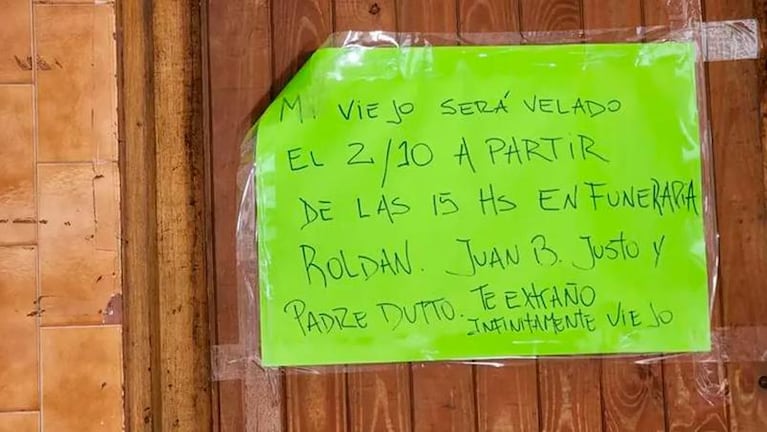 MI VIEJO SERÁ VELADO
EL 2/10 A PARTIR
DE LAS 15 HS EN FUNERARIA
ROLDAN. JUAN B. JUSTO Y
PADRE DUTTO. TE EXTRAÑO
INFINITAMENTE VIEJO